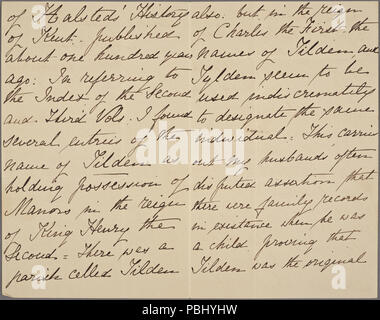 of Halsteds' History
of Kent. published
about one hundred years
ago: In referring to
the Index of the Second
and Third Vols. I found
several entries of the
name of Tilden as
holding possession of
Manors in the reign
of King Henry the
Second = There was a
parish called Tilden
also. but in the reign
of Charles the First the
names of Tilden and
Tylden seem to be
used indiscrimately
to designate the same
individual = This carries
out my husbands' often
disputed assertion that
there were family records
in existance when he was
a child proving that
Tilden was the original
alamy
Image ID: PBHYHW
www.alamy.com